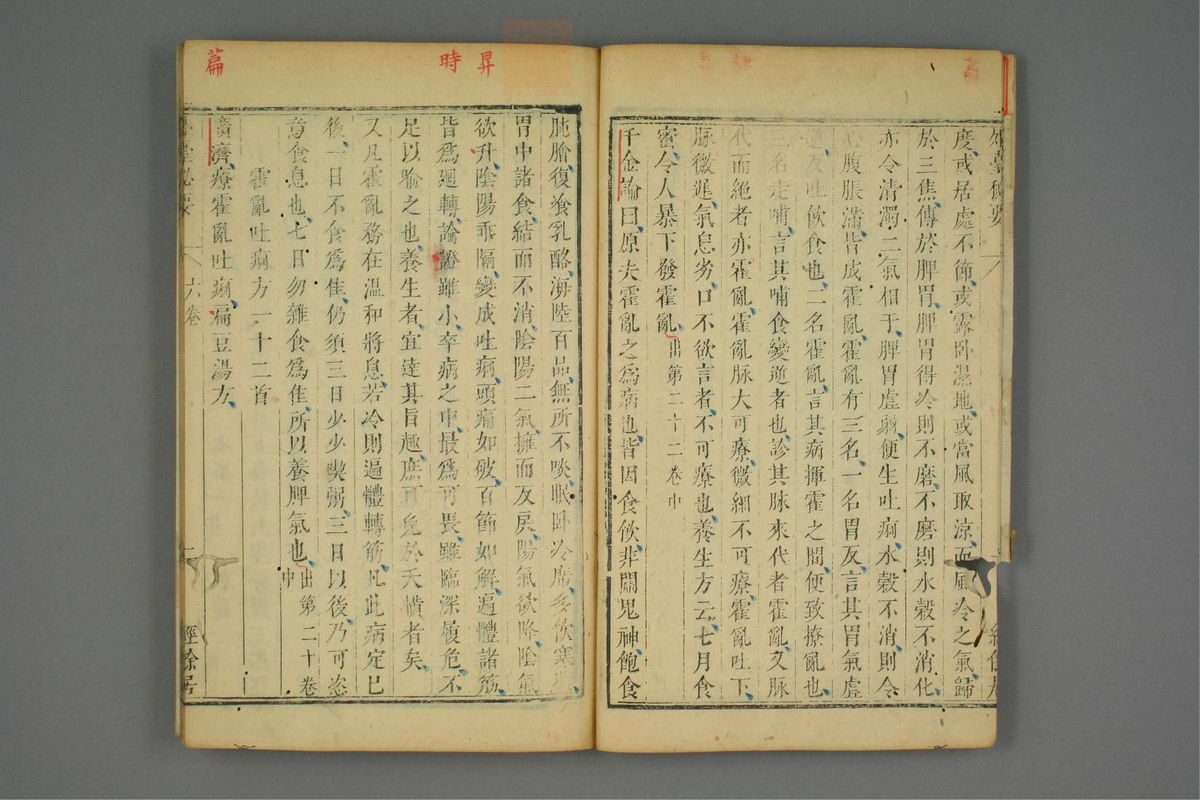 外臺秘要
度或居處不節或露臥濕地或當風取涼而風冷之氣歸
於三焦傳於脾胃脾胃得冷則不磨不磨則水穀不消化
亦令清濁二氣相干脾胃虛弱便生吐痢水穀不消則令
心腹脹滿皆成霍亂霍亂有三名一名胃反言其胃氣虛
逆反吐飲食也二名霍亂言其病揮霍之間便致撩亂也
三名走哺言其哺食變逆者也診其脉來代者霍亂又脉
代而絕者亦霍亂霍亂脉大可療微細不可療霍亂吐下
脉微遲氣息劣口不欲言者不可療也養生方云七月食
蜜令人暴下發霍亂出第二十二卷中
千金論曰原夫霍亂之爲病也皆因食飲非關鬼神飽食
肫膾復飡乳酪海陸百品無所不啖眠臥冷席多飲寒
胃中諸食結而不消陰陽二氣擁而反戾陽氣欲降陰氣
欲升陰陽乖隔變成吐痢頭痛如破百節如解遍體諸筋
皆爲廻轉論證雖小卒病之中最爲可畏雖臨深履危不
足以喻之也養生者宜達其旨趣庶可免於夭橫者矣
又凡霍亂務在溫和將息若冷則遍體轉筋凡此病定已
後一日不食爲佳仍須三日少少喫粥三日以後乃可恣
意食息也七日勿雜食爲佳所以養脾氣也出第二十卷中
霍亂吐痢方一十二首
廣濟療霍亂吐痢扁豆湯方
臺秘要
六卷
經餘居
昇
時
篇